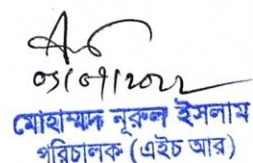 ০৫/০৭/২০২২
মোহাম্মদ নূরুল ইসলাম
পরিচালক (এইচ আর)